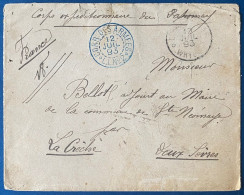 Corps expéditionnaire du Dahomey
France
COR. D. ARMEES
12
JUIL
93
93
Monsieur
Bellot, adjoint au Maire
de la commune de Ste Neomaye
par
La Crèche
Deux Sèvres